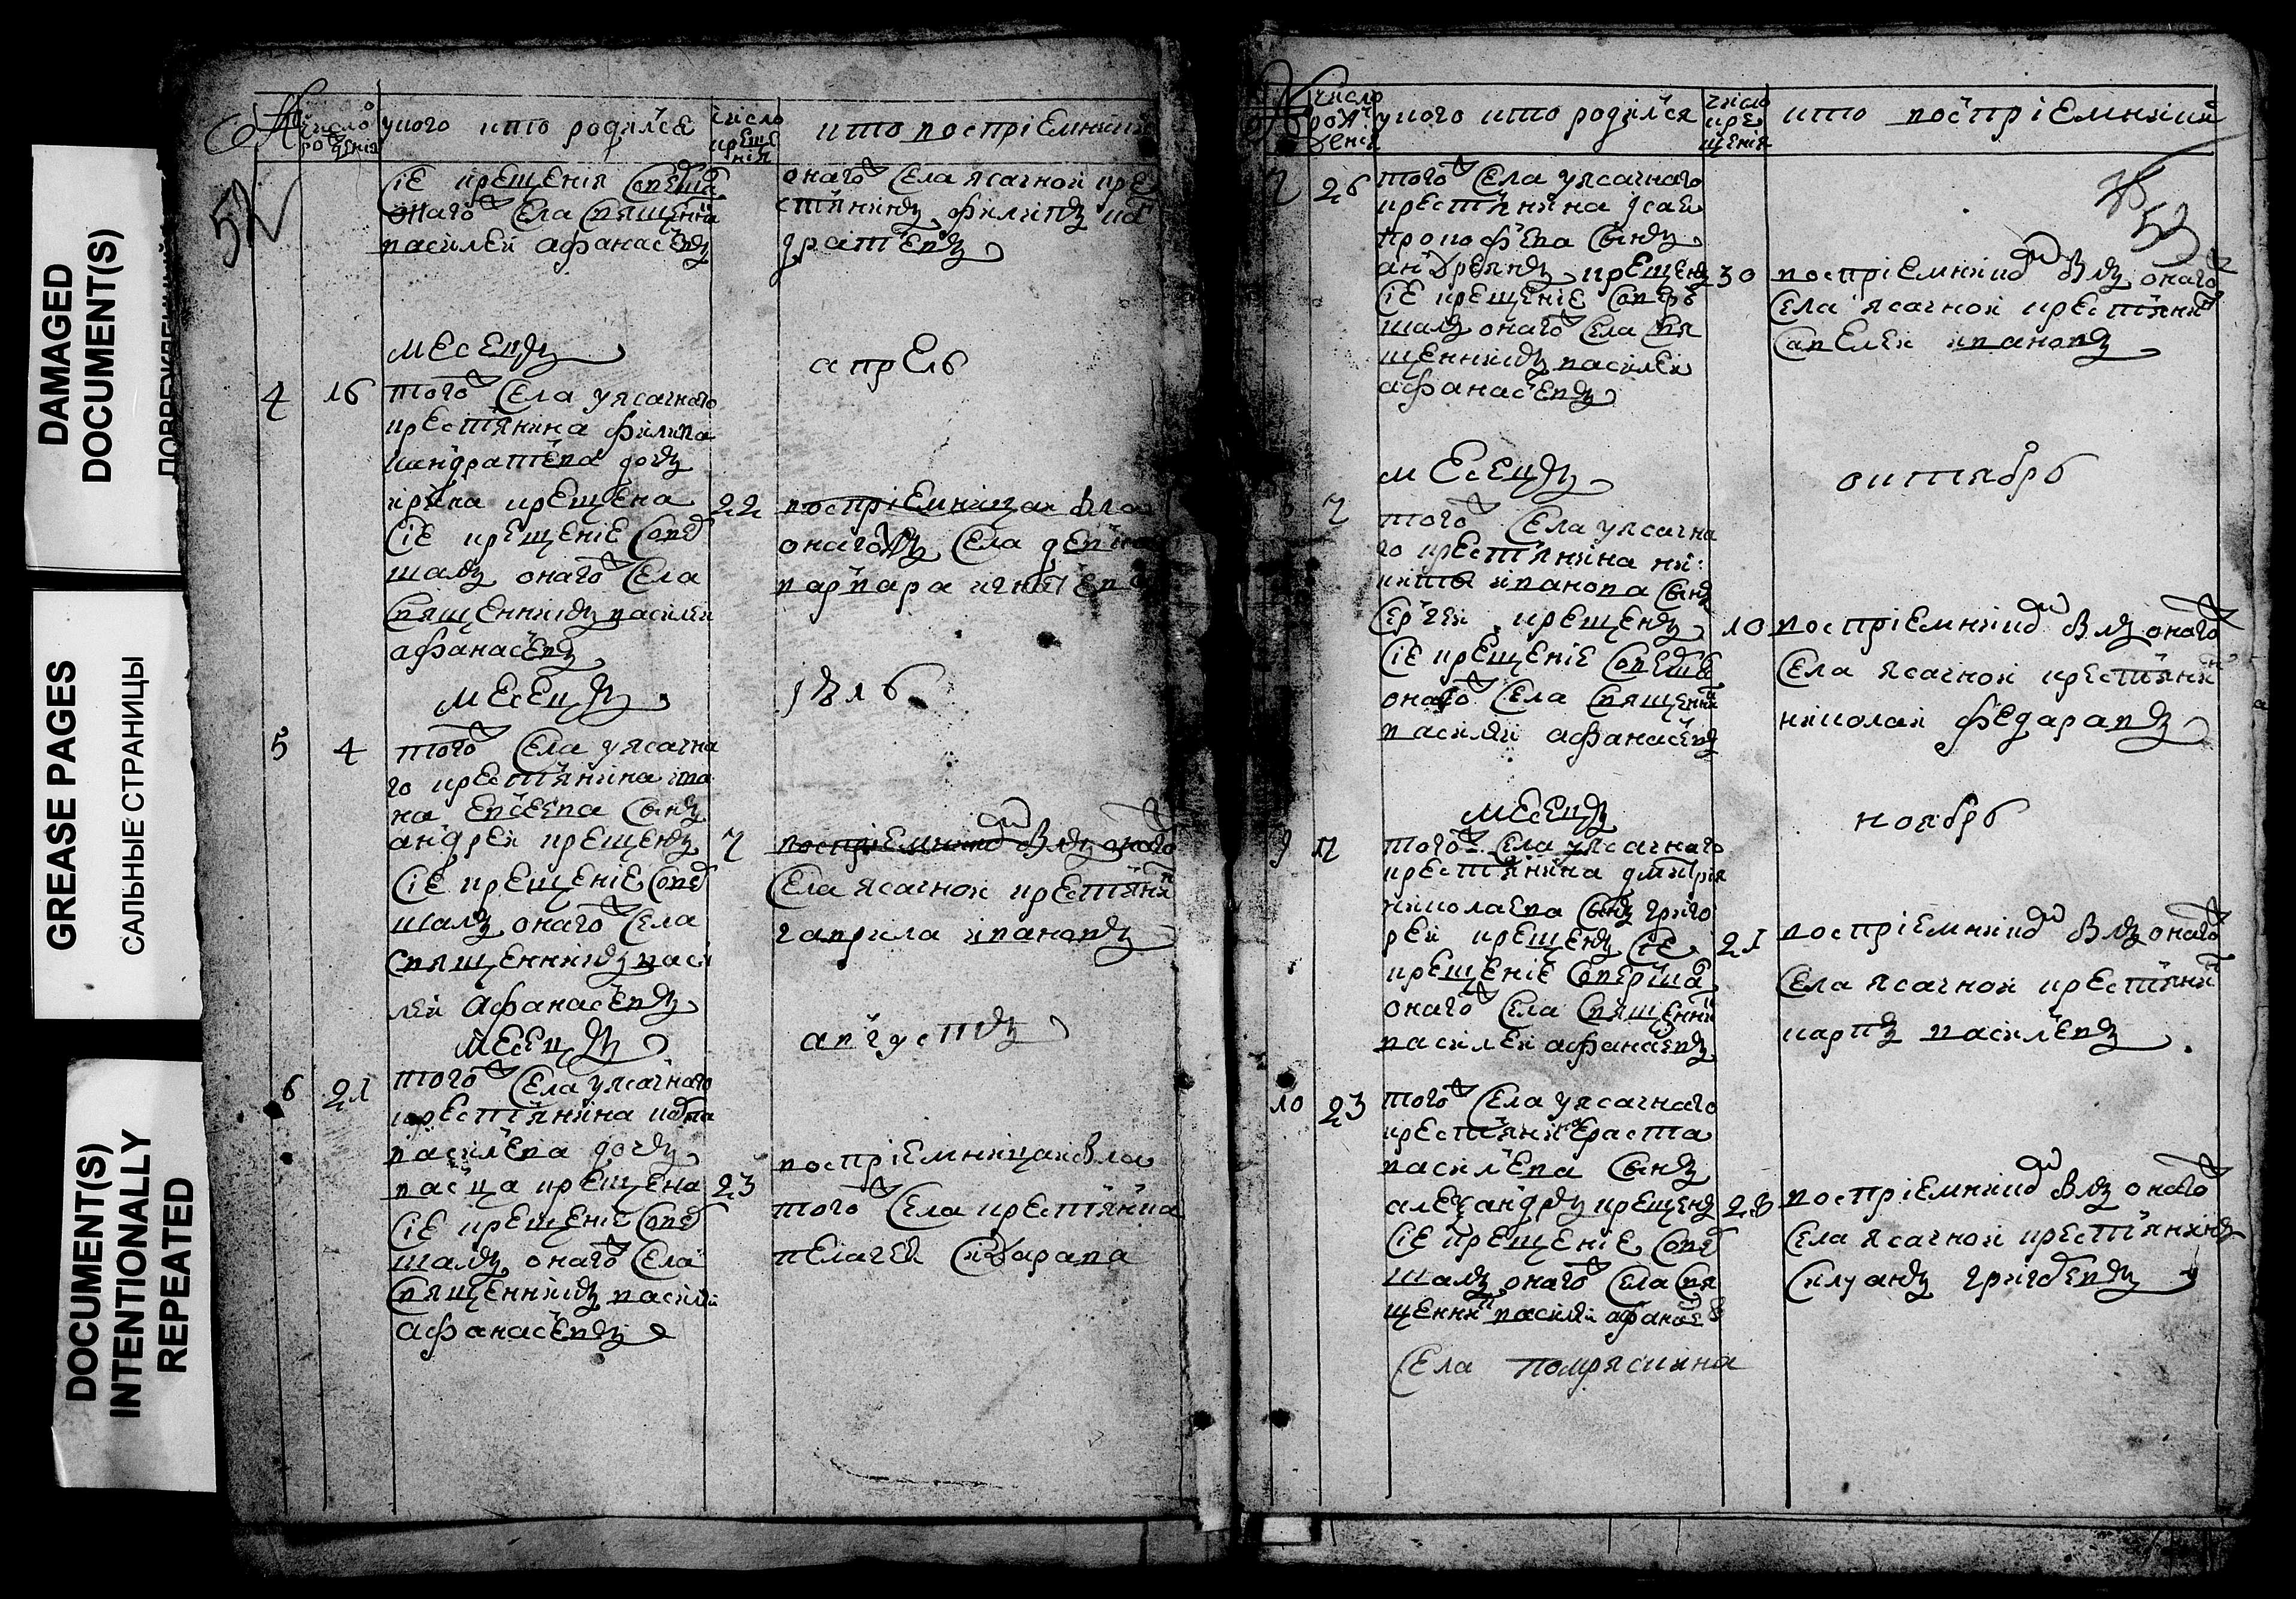 DAMAGED
DOCUMENT(S)
GREASE PAGES
САЛЬНЫЕ СТРАНИЦЫ
DOCUMENT(S)
INTENTIONALLY
REPEATED
52
№ число рождения
у кого кто родился
число крещения
кто восприемники
сіе крещенія соверша
онаго села священни
василей афанасьевъ
онаго села ясачной кре
стьянинъ филипъ кон
дратьевъ
месецъ
апрель
4 16 того села у ясачнаго
крестьянина филипа
кандратьева дочь
ирина крещена
сіе крещеніе совер
шалъ онаго села
священникъ василей
афанасьевъ
22 воспріемницаю была
онаго села девка
варвара игнатьева
месецъ
іюль
5 4 того села у ясачна
го крестьянина ива
на евсеева сынъ
андрей крещенъ
сіе крещеніе совер
шалъ онаго села
священникъ васи
лей афанасьевъ
7 воспріемникомъ былъ онаго
села ясачной крестьянин
гаврила ивановъ
месецъ
августъ
6 21 того села у ясачнаго
крестьянина
васильева дочь
васса крещена
сіе крещеніе совер
шалъ онаго села
священникъ василей
афанасьевъ
23 воспріемницаю была
того села крестьянка
пелагея сидарава
№ число рожденія
у кого кто родился
число крещенія
кто воспріемники
52
7 26 того села у ясачнаго
крестьянина исаи
прокофьева сынъ
андреянъ крещенъ
сіе крещеніе совер
шалъ онаго села свя
щенникъ василей
афанасьевъ
30 воспріемникомъ былъ онаго
села ясачной крестьянин
савелей ивановъ
месецъ
октябрь
8 7 того села у ясачна
го крестьянина ни
киты иванова сынъ
сергей крещенъ
сіе крещеніе соверша
онаго села священни
василей афанасьевъ
10 воспріемникомъ былъ онаго
села ясачной крестьянин
николай федаравъ
месецъ
ноябрь
9 17 того села у ясачнаго
крестьянина дмитрія
николаева сынъ григо
рей крещенъ сіе
крещеніе соверша
онаго села священни
василей афанасьевъ
21 воспріемникомъ былъ онаго
села ясачной крестьянин
карпъ васильевъ
10 23 того села у ясачнаго
крестьянина ераста
васильева сынъ
александръ крещенъ
сіе крещеніе совер
шалъ онаго села свя
щенник василей афанасьев
28 воспріемникомъ былъ онаго
села ясачной крестьянинъ
силуанъ григорьевъ
села